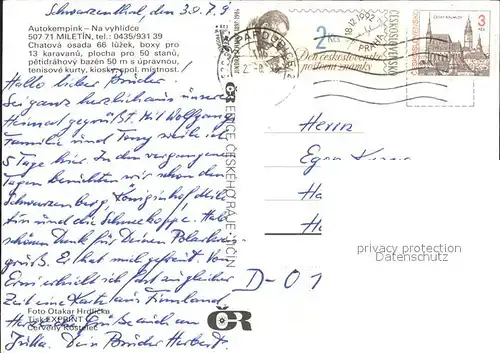 Schwarzenthal, den 30.7.9
Autokempink – Na vyhlídce
507 71 MILETÍN, tel.: 0435/931 39
Chatová osada 66 lůžek, boxy pro
13 karavanů, plocha pro 50 stanů,
pětidráhový bazén 50 m s úpravnou,
tenisové kurty, kiosky, spol. místnost.
Hallo lieber Bruder!
Sei ganz herzlich aus unserer
Heimat gegrüßt. Mit Wolfgang
Familie und Tomy weile ich
5 Tage hier. In den vergangenen
Tagen besuchten wir schon den
Schwarzenberg, Königinhof, Mile-
tin und die Schneekoppe. Hab
schönen Dank für Deinen Polarkreis-
gruß. Er hat mich gefreut. Von
Erni erhielt ich fast zu gleicher
Zeit eine Karte aus Finnland.
Herzliche Grüße auch an
Jutta. Dein Bruder Herbert.
Foto Otakar Hrdlička
Tisk EXPRINT
Červený Kostelec
EDICE ČESKÉHO RÁJE JIČÍN
ČR
ČR
PARDUBICE
2 Kčs
Den československé
poštovní známky
18.12.1992
PRAHA
ČESKOSLOVENSKO
ČESKÝ KRUMLOV
3
Kčs
Herrn
Egon
D-01
privacy protection
Datenschutz